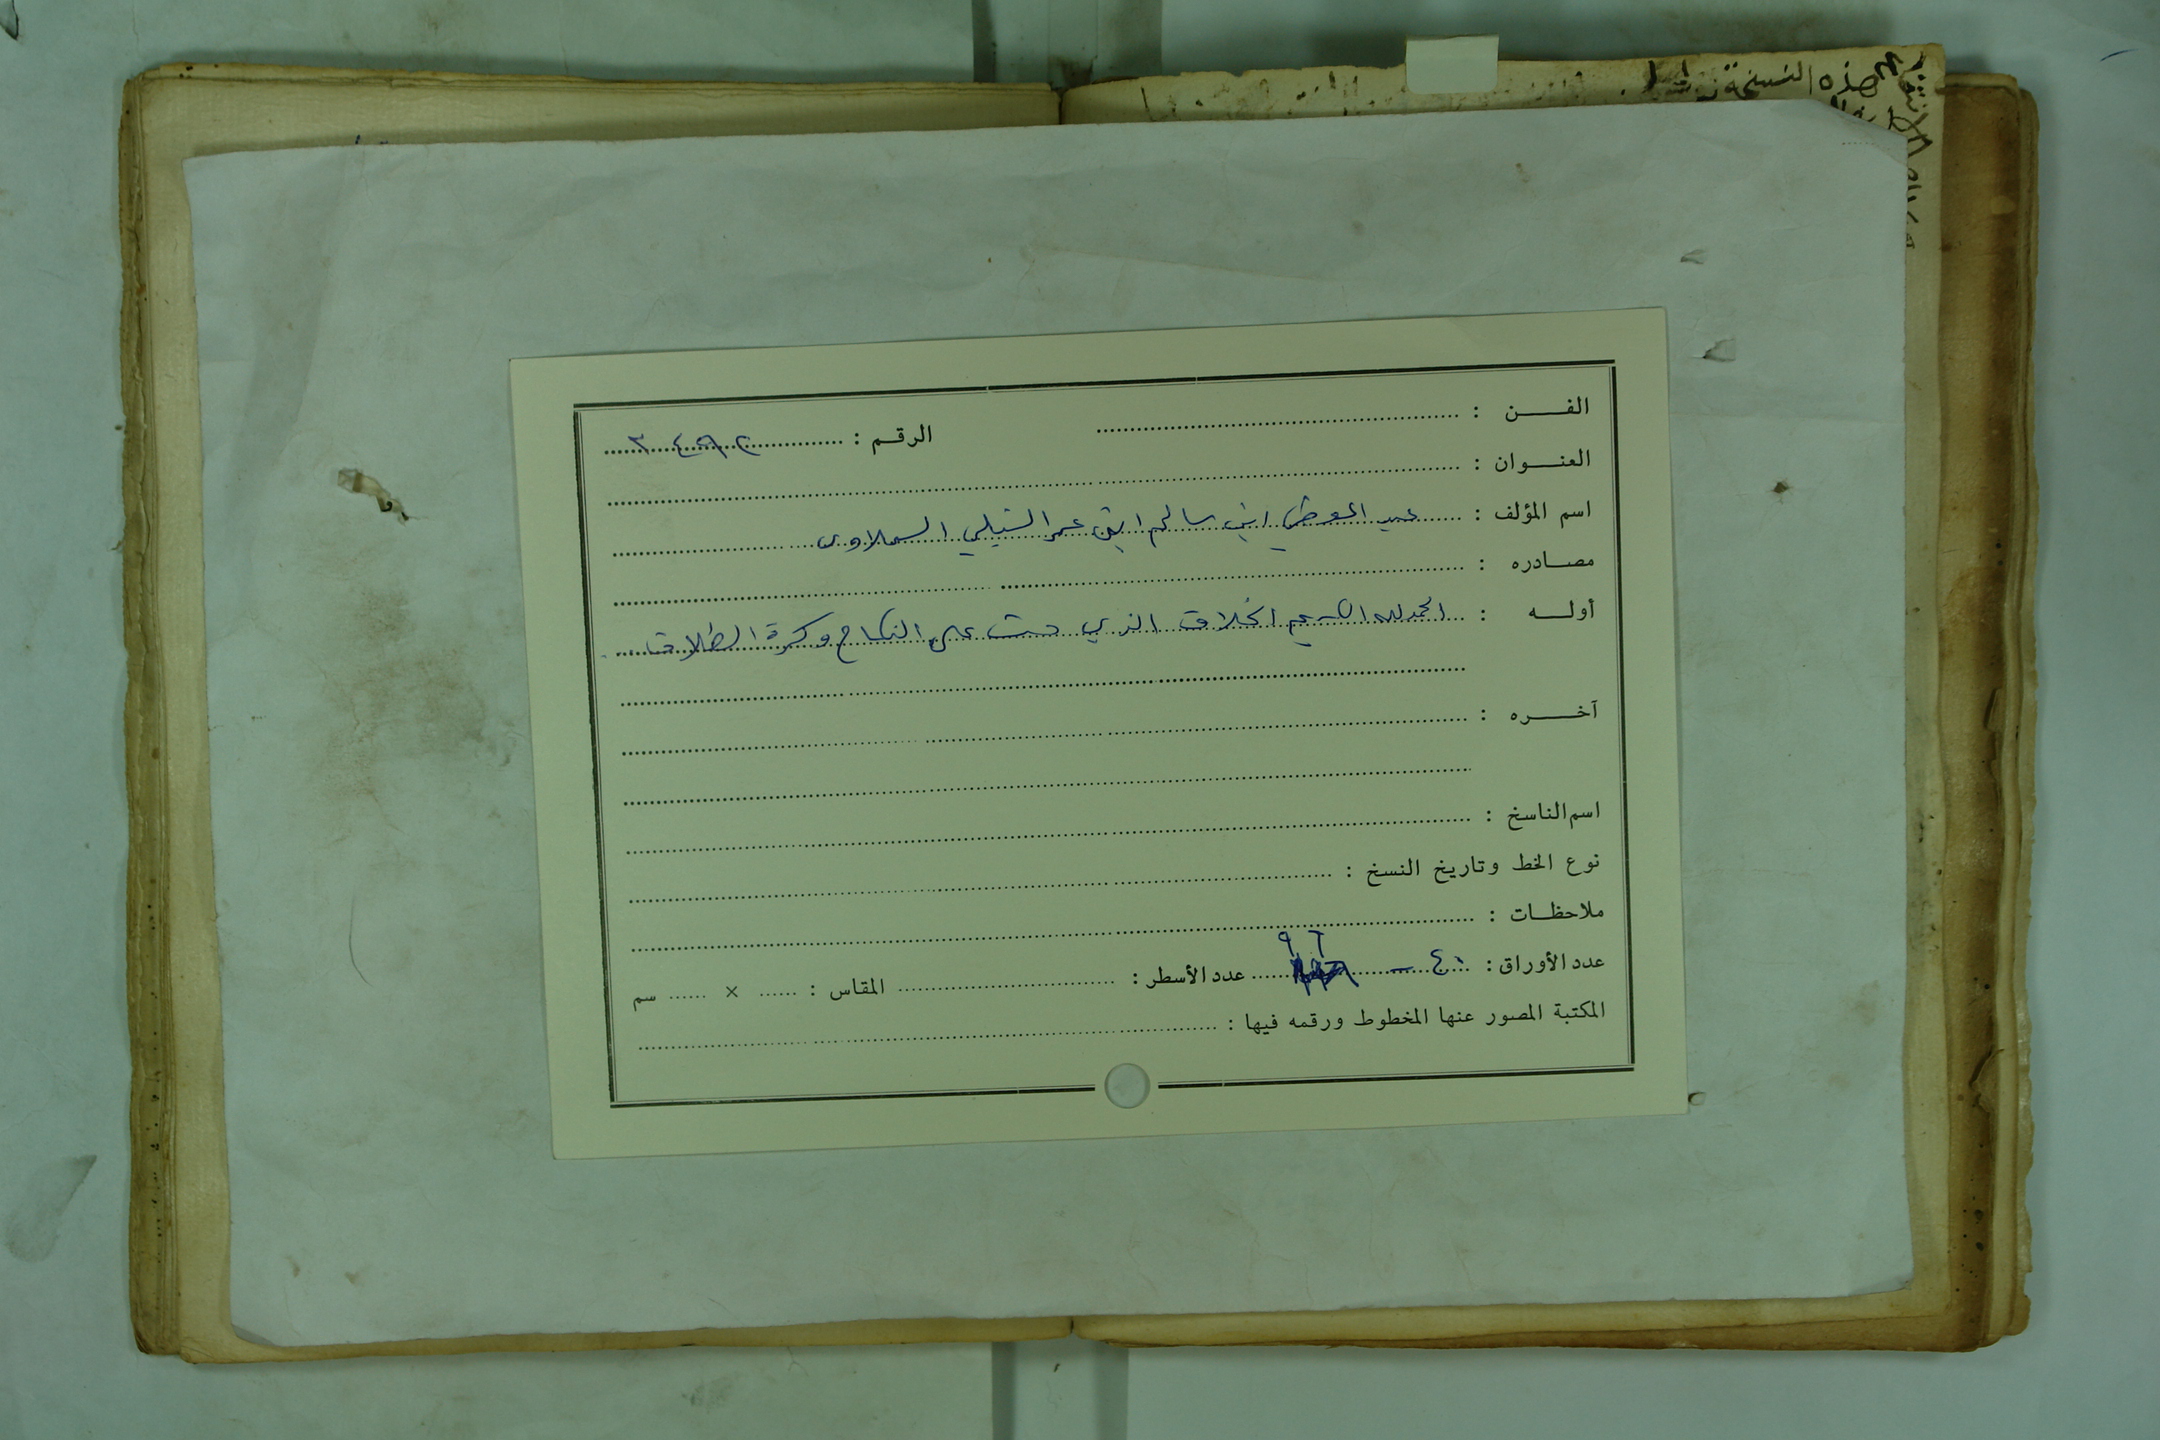 هذه النسخة
الفـن :
الرقم : ٣٤٩٢
العنـوان :
اسم المؤلف : عبد المعطي ابن سالم ابن عمر الشبلي السملاوى
مصـادره :
أولـه : الحمد لله الكريم الخلاق الذي حث على النكاح وكره الطلاق
آخـره :
اسم الناسخ :
نوع الخط وتاريخ النسخ :
ملاحظـات :
٩٦
عدد الأوراق : ٤٠ - عدد الأسطر : المقاس : × سم
المكتبة المصور عنها المخطوط ورقمه فيها :